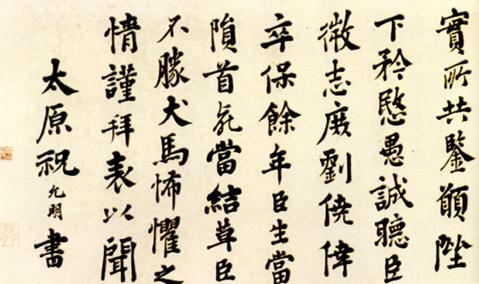 實所共鑒願陛
下矜愍愚誠聽臣
微志庶劉僥倖
卒保餘年臣生當
隕首死當結草臣
不勝犬馬怖懼之
情謹拜表以聞
太原祝允明書